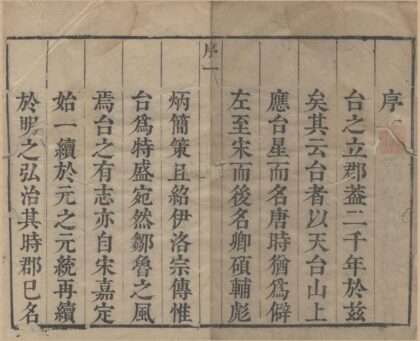 序
台之立郡葢二千年於兹
矣其云台者以天台山上
應台星而名唐時猶爲僻
左至宋而後名卿碩輔彪
序一
炳簡策且紹伊洛宗傳惟
台爲特盛宛然鄒魯之風
焉台之有志亦自宋嘉定
始一續於元之元統再續
於明之弘治其時郡已名